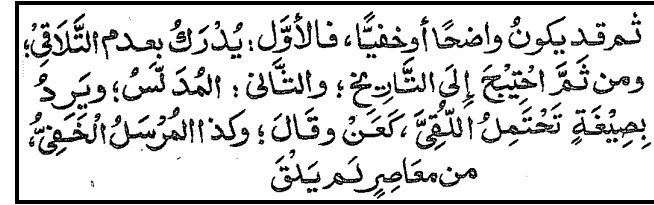 ثم قد يكونُ واضحًا أو خفيًّا، فالأوَّل: يُدْرَكُ بعدم التَّلَاقِيْ؛
ومن ثَمَّ احْتِيْجَ إلَى التَّاريخ؛ والثَّانى: المُدَلَّسُ؛ ويَرِدُ
بِصِيْغَةٍ تَحْتَمِلُ اللُّقِيَّ، كَعَنْ وقَالَ؛ وكذا المُرْسَلُ الْخَفِيُّ،
من معَاصِرٍ لَم يَلْقَ